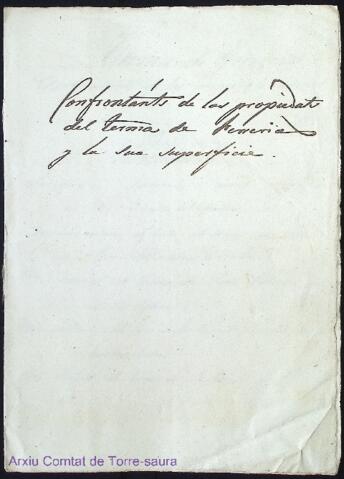 Confrontánts de las propiedats
del terma de Ferrerias
y la sua superficie.
Arxiu Comtat de Torre-saura